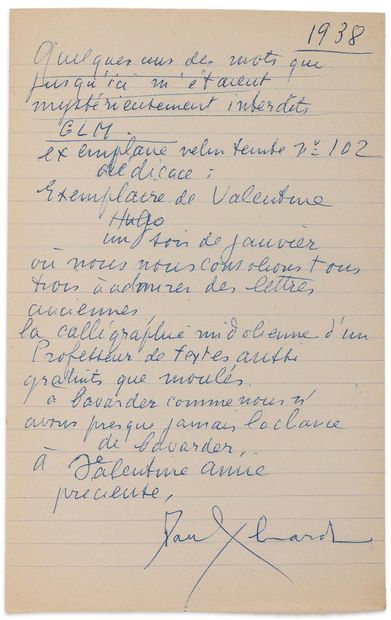 1938
Quelques uns des mots que
jusqu'ici m'étaient
mystérieusement interdits
GLM.
exemplaire velin teinté nº 102
dédicace :
Exemplaire de Valentine
Hugo
un soir de janvier
où nous nous consolions tous
trois à admirer des lettres
anciennes
la calligraphie d'un
Professeur de textes aussi
gratuits que moulés.
à bavarder comme nous n'
avons presque jamais la chance
de bavarder,
à Valentine amie
précieuse,
Paul Eluard